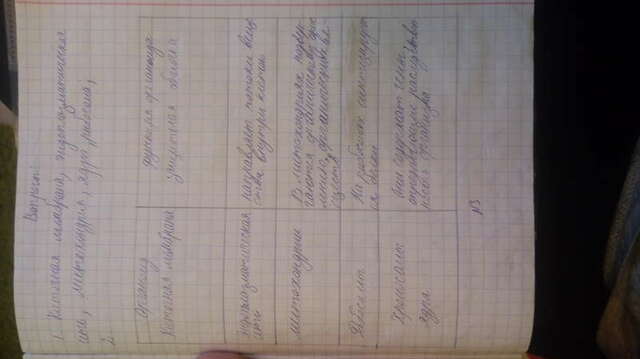 Вопросы:
1. Клеточная мембрана, эндоплазматическая
сеть, митохондрия, ядро, рибосома,
2.
Органоид функция органоида
Клеточная мембрана защитная оболочка
эндоплазматическая направляет потоки веще
сеть ства внутри клетки
митохондрии В митохондриях подвер
гаются
органических ве
ществ
На рибосомах синтезируют
ся белки
Хромосомы Они содержат гены,
ядра определяющие наследствен
организма
№3